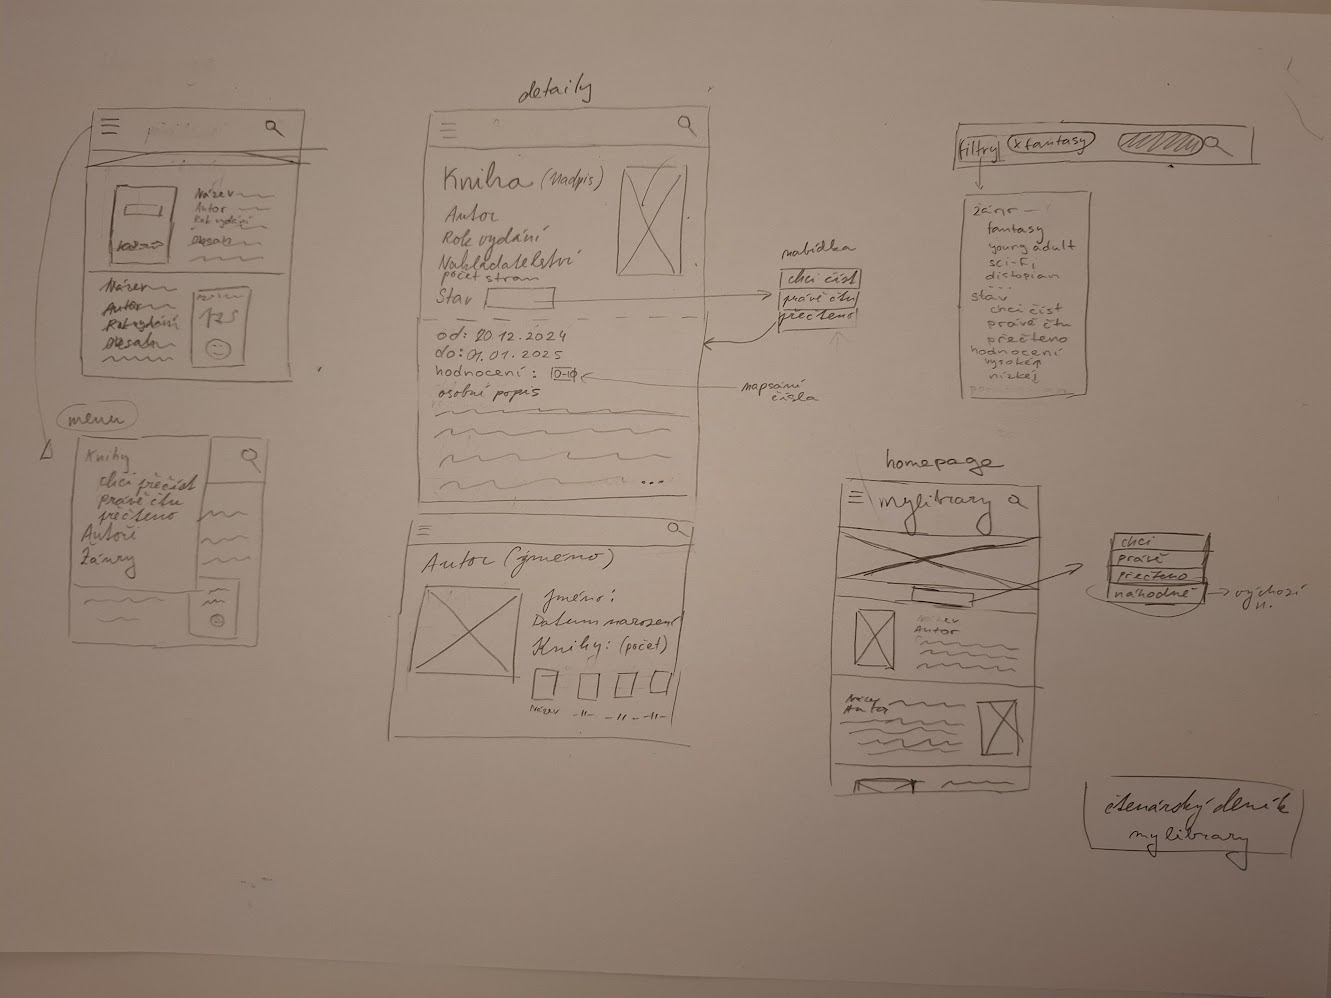 Název
Autor
Rok vydání
Obsah
Název
Autor
Rok vydání
Obsah
menu
Knihy
chci přečíst
právě čtu
přečteno
Autoři
Žánry
detaily
Kniha (Nadpis)
Autor
Rok vydání
Nakladatelství
počet stran
Stav
od: 20.12.2024
do: 01.01.2025
hodnocení : 0-10
osobní popis
...
nabídka
chci číst
právě čtu
přečteno
napsání
čísla
Autor (jméno)
Jméno:
Datum narození
Knihy: (počet)
Název -11- -11- -11-
filtry x fantasy
žánr
fantasy
young adult
sci-fi
distopian
...
stav
chci číst
právě čtu
přečteno
hodnocení
nízké
homepage
mylibrary
Název
Autor
Název
Autor
chci
právě
přečteno
náhodně
výchozí
n.
čtenářský deník
my library